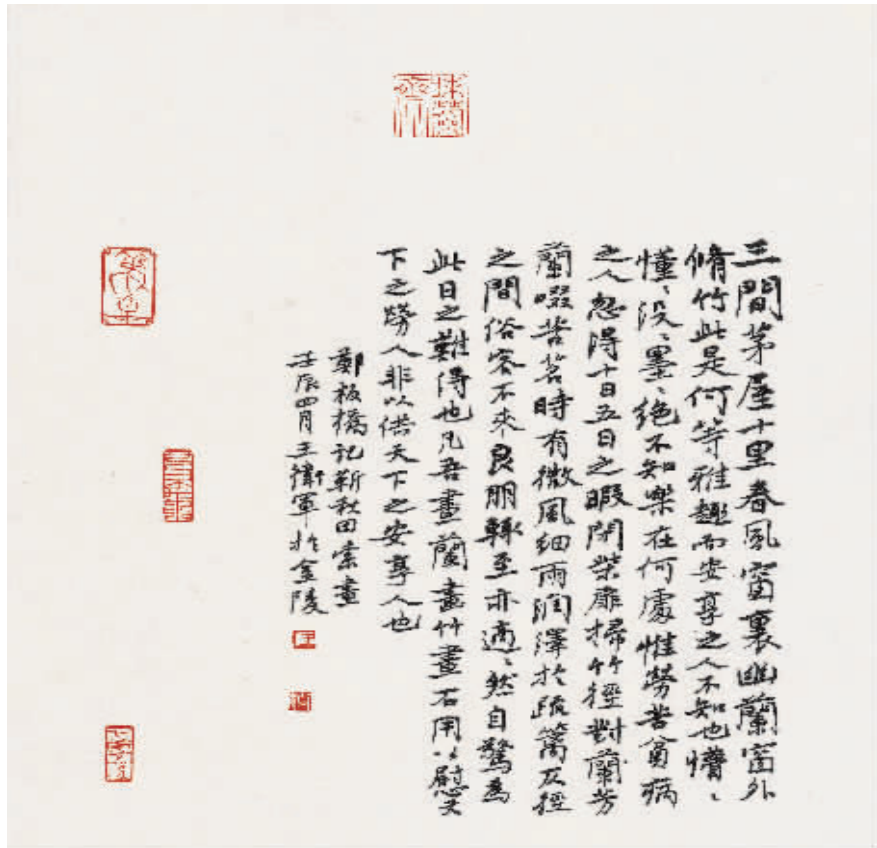 三間茅屋十里春風窗裏幽蘭窗外
脩竹此是何等雅趣而安享之人不知也懵、
懂、没、墨、絕不知樂在何處惟勞苦貧病
之人忽得十日五日之暇閉柴扉掃竹徑對蘭芳
蘭啜苦茗時有微風細雨潤澤於疏篱仄徑
之間俗客不來良朋輒至亦適、然自驚為
此日之難得也凡吾畫蘭畫竹畫石用以慰天
下之勞人非以供天下之安享人也
鄭板橋記靳秋田索畫
壬辰四月王衛軍於金陵